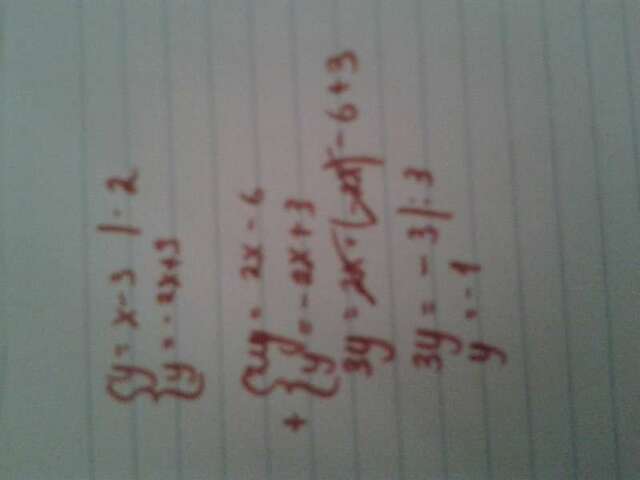 {y = x - 3 |· 2
{y = - 2x + 3
{2y = 2x - 6
+ {y = - 2x + 3
3y = 2x + (-2x) - 6 + 3
3y = - 3 |: 3
y = - 1